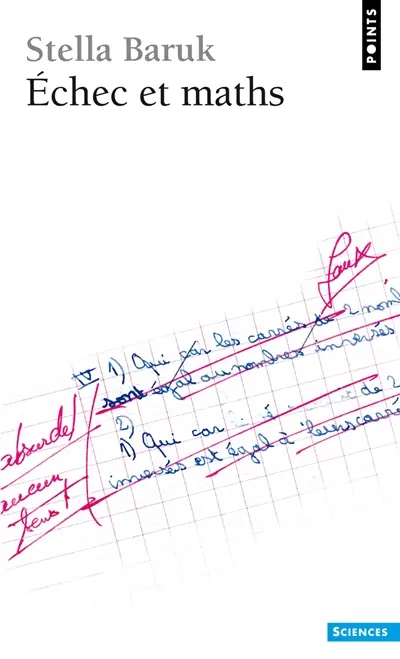 Stella Baruk
Échec et maths
POINTS
faux
IV 1) Qui car les carrés de 2 nom
sont égal au nombres inversés
2)
1) Qui car de 2
inversés est égal à leurs carré
absurde!
aucun
sens!
SCIENCES